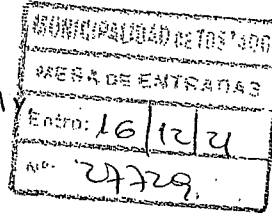 MUNICIPALIDAD DE TOSTADO
MESA DE ENTRADAS
Entro: 16 12 21
Nº 27729.